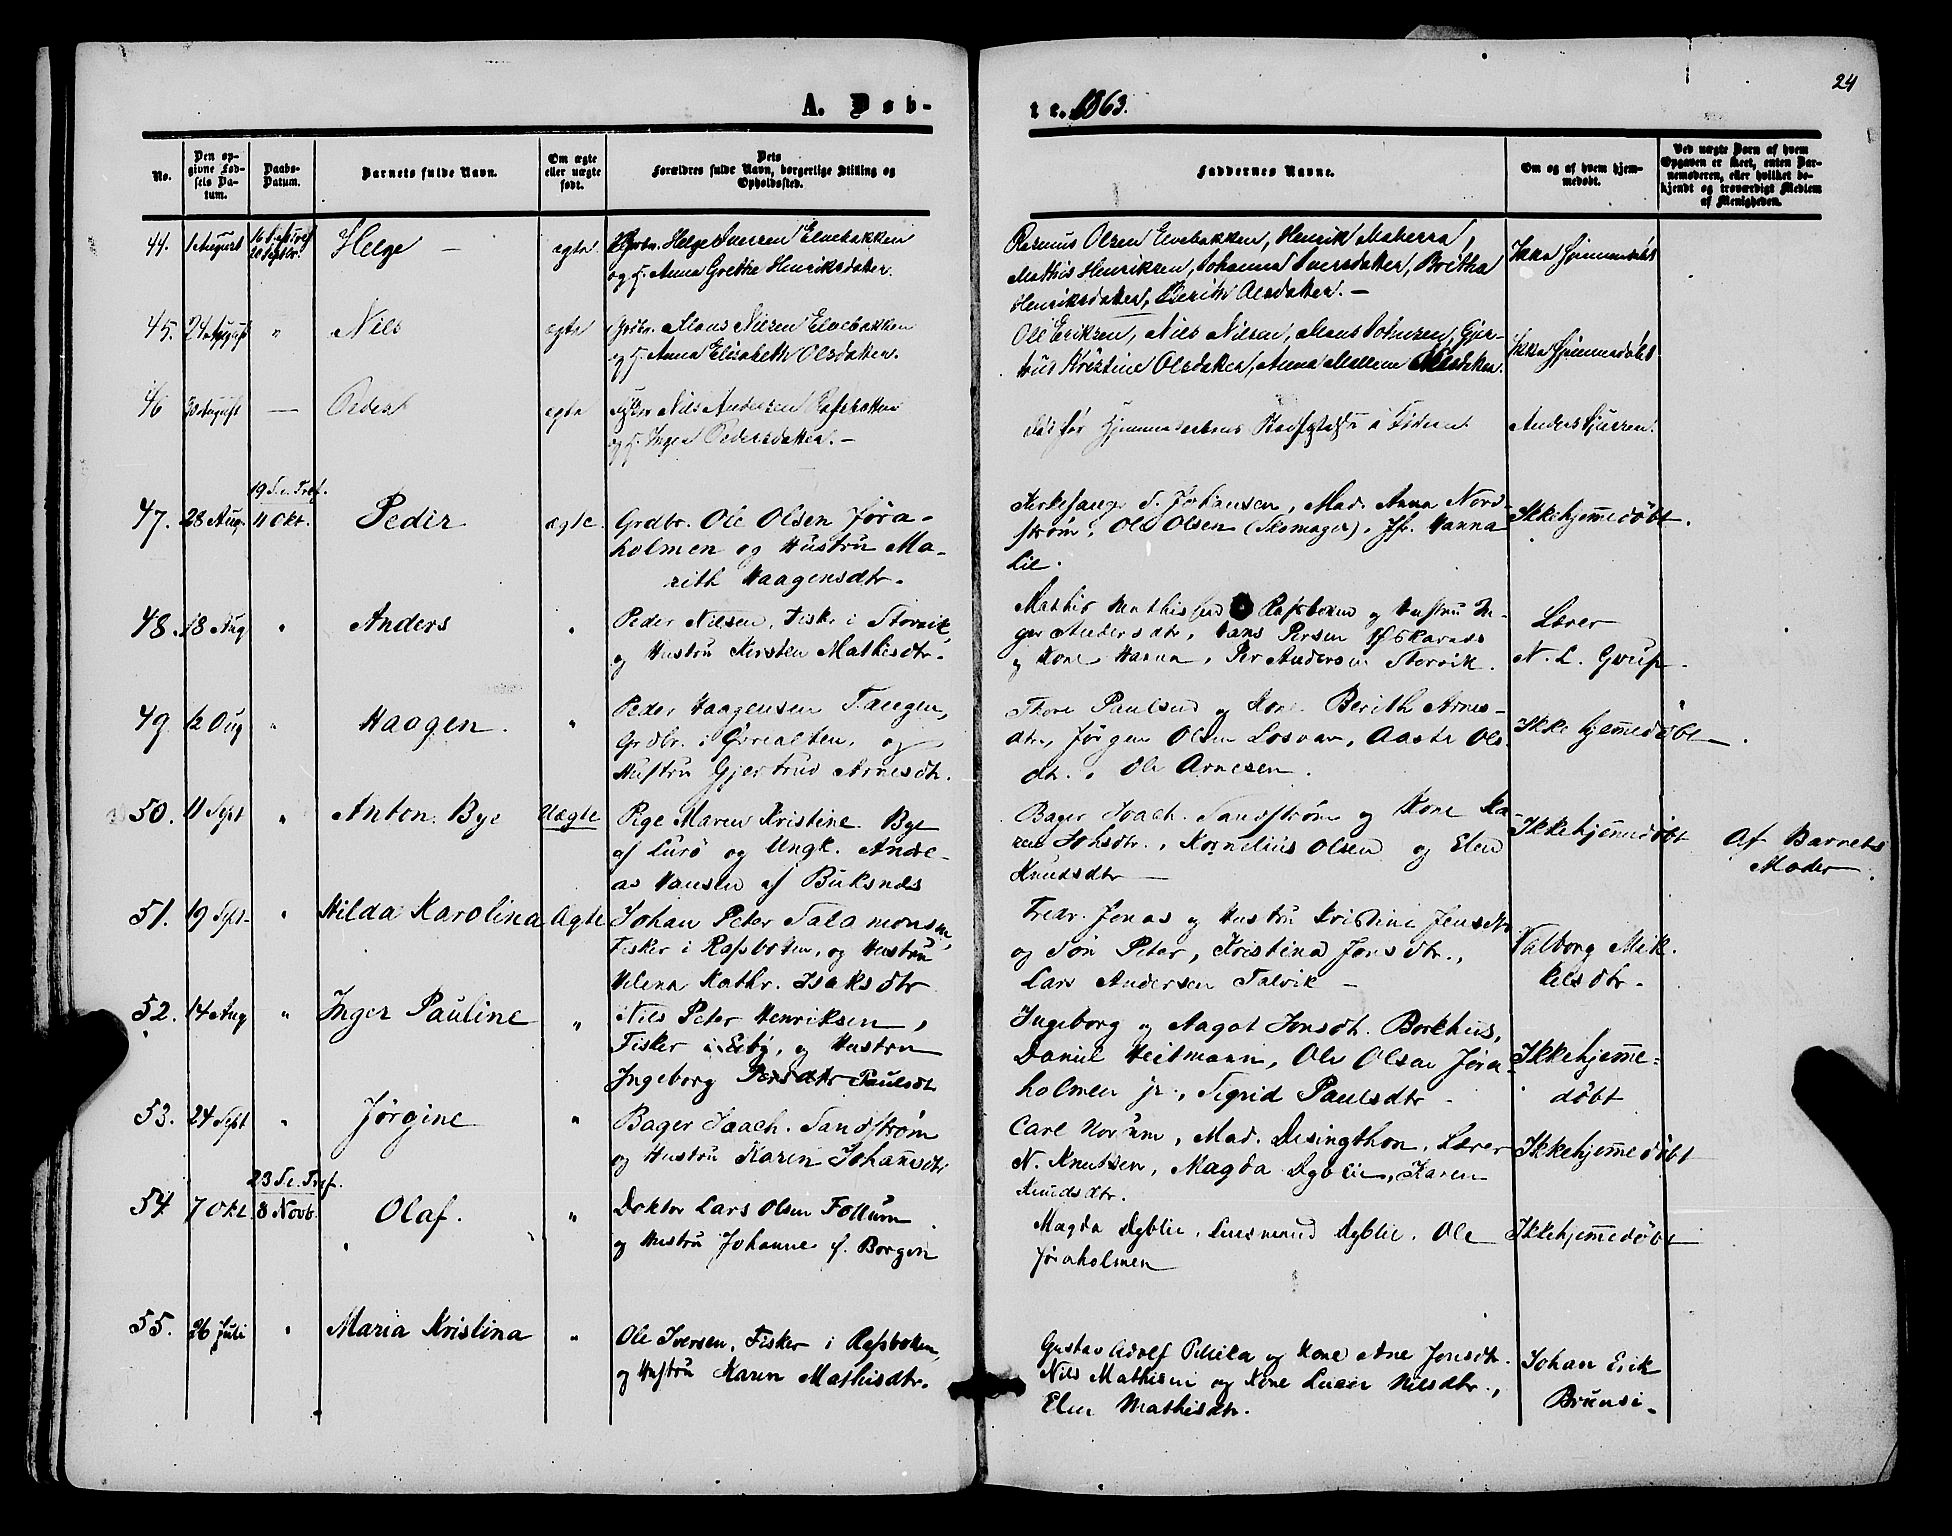 24
A. Døb-
te. 1863.
No.
Den op-
givne Fød-
sels Da-
tum.
Daabs-
Datum.
Barnets fulde Navn.
Om ægte
eller uægte
født.
Dets
Forældres fulde Navn, borgerlige Stilling og
Opholdssted.
Faddernes Navne.
Om og af hvem hjem-
medøbt.
Ved uægte Børn af hvem
Opgaven er skeet, enten Bar-
nemoderen, eller hvilket be-
kjendt og troværdigt Medlem
af Menigheden.
44. 1 August 20 Septbr. Helge – ægte Grdbr. Helge Iversen Elvebakken
og H. Anna Grethe Henriksdatter.
Rasmus Olsen Elvebakken, Henrik
Mathis Henriksen, Johanna Iversdatter, Britha
Henriksdatter, Berith Olsdatter. –
Ikke Hjemmedøbt
45. 24 August " Nils ægte Grdbr. Mons Nilsen Elvebakken
og H. Anna Elisabeth Olsdatter.
Ole Eriksen, Nils Nilsen, Mons Johnsen, Gjer-
trus Kristine Olsdatter, Anna Mallene
Ikke Hjemmedøbt
46 August — Peder ægte Nils Andersen Rafsbotten
og H. Inger Pedersdatter. –
Død før Hjemmedaabens Stadfæstelse
Anders
47. 28 Aug. 19 S. e. Tref. 11 Okt. Peder ægte. Grdbr. Ole Olsen Jøra-
holmen og Hustru Ma-
rith Haagensdtr.
Kirkesanger S. Johansen, Mad. Anna Nord-
strøm, Ole Olsen (Skomager), Jfr. Hanna
Lie.
Ikkehjemmedøbt.
48. 18 Aug " Anders " Peder Nilsen, Fisker i Storvik,
og Hustru Kirsten Mathisdtr.
Mathis Mathissen Rafsbotten og Hustru In-
ger Andersdtr, Hans Persen
og Kone Hanna, Per Andersen Storvik.
Lærer
N. L.
49. 12 Aug " Haagen. " Peder Haagensen Tangen,
Grdbr. i og
Hustru Gjertrud Arnesdtr.
Thore Paulsen og Kone Berith Arnes-
dtr., Jørgen Olsen Losvar, Aaste Ols-
dtr., Ole Arnesen.
Ikke hjemmedøbt.
50. 11 Sept " Anton Bye Uægte Pige Maren Kristine Bye
af Lurø og Ungk. Andre-
as Hansen af Buksnes
Bager Joach. Sandstrøm og Kone Ka-
ren Johsdtr., Kornelius Olsen og Elen
Knutsdtr —
Ikkehjemmedøbt
Af Barnets
Moder.
51. 19 Sept. " Hilda Karolina Ægte Johan Peter Salamonsen,
Fisker i Rafsbotten, og Hustru
Helena Kathr. Isaksdtr
Fredr. Jonas og Hustru Kristine Jensdtr
og Søn Peter, Kristina Jonsdtr.,
Lars Andersen Talvik –
Valborg Mik-
kelsdtr.
52. 14 Aug " Inger Pauline " Nils Peter Henriksen,
Fisker i Eiby, og Hustru
Ingeborg Paulsdt
Ingeborg og Aagot Jonsdt. Borkhus,
Daniel Heitmann, Ole Olsen Jøra-
holmen jr., Sigrid Paulsdtr –
Ikkehjemme-
døbt
53. 24 Sept " Jørgine " Bager Joach. Sandstrøm
og Hustru Karen Johansdtr
Carl Norum, Mad. Desingthon, Lærer
N. Knutsen, Magda Dyblie, Karen
Knudsdtr.
Ikkehjemmedøbt
54 7 Okt. 23 S. e. Tref. 8 Novb. Olaf. " Doktor Lars Olsen Follum
og Hustru Johanne f. Borgen
Magda Dyblie, Lensmand Dyblie, Ole
Jøraholmen
Ikkehjemmedøbt
55. 26 Juli " Maria Kristina " Ole Iversen, Fisker i Rafsbotten,
og Hustru Karen Mathisdtr.
Gustav Adolf Pekila og Kone Ane Jonsdtr.
Nils Mathisen og Kone Lucie Nilsdtr.,
Elen Mathisdtr.
Johan Erik
Brunsi.